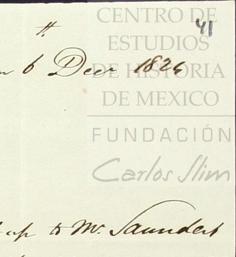 41
CENTRO DE
ESTUDIOS
DE HISTORIA
DE MEXICO
FUNDACIÓN
Carlos Slim
th
6 Decr 1826
up to Mr. Saunders